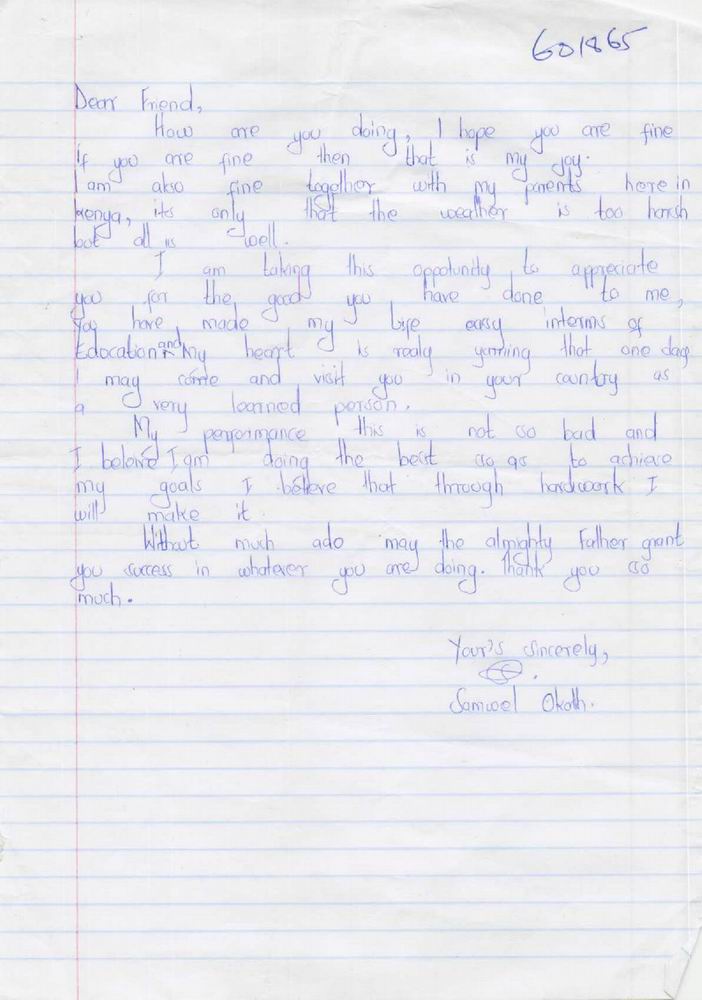 601865
Dear Friend,
How are you doing, I hope you are fine
if you are fine then that is my joy.
I am also fine together with my parents here in
kenya, its only that the weather is too harsh
but all is well.
I am taking this oppotunity to appreciate
you for the good you have done to me,
You have made my life easy interms of
Education and My heart is realy yarning that one day
I may come and visit you in your country as
a very learned person.
My performance this is not so bad and
I beleive I am doing the best so as to achieve
my goals I beleve that through hardwork I
will make it.
Without much ado may the almighty Father grant
you success in whatever you are doing. thank you so
much.
Your's sincerely,
Samwel Okoth.